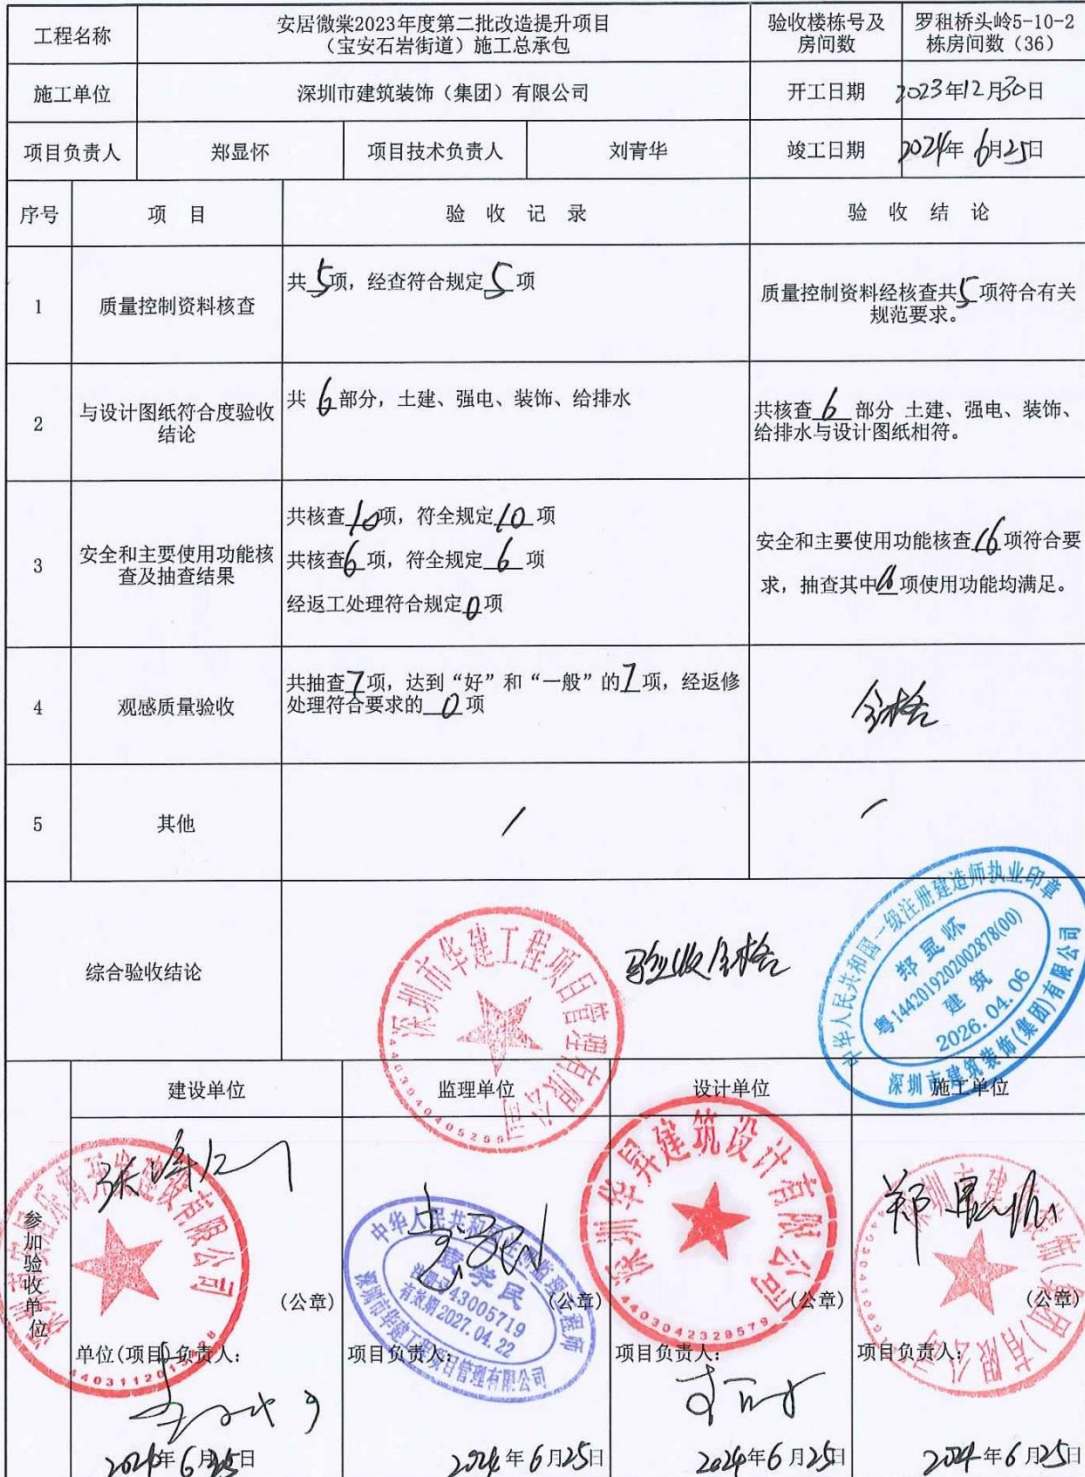 工程名称
安居微棠2023年度第二批改造提升项目
（宝安石岩街道）施工总承包
验收楼栋号及
房间数
罗租桥头岭5-10-2
栋房间数（36）
施工单位
深圳市建筑装饰（集团）有限公司
开工日期
2023年12月30日
项目负责人
郑显怀
项目技术负责人
刘青华
竣工日期
2024年6月25日
序号
项 目
验 收 记 录
验 收 结 论
1
质量控制资料核查
共5项，经查符合规定5项
质量控制资料经核查共5项符合有关
规范要求。
2
与设计图纸符合度验收
结论
共6部分，土建、强电、装饰、给排水
共核查6部分 土建、强电、装饰、
给排水与设计图纸相符。
3
安全和主要使用功能核
查及抽查结果
共核查10项，符全规定10项
共核查6项，符全规定6项
经返工处理符合规定0项
安全和主要使用功能核查16项符合要
求，抽查其中16项使用功能均满足。
4
观感质量验收
共抽查7项，达到“好”和“一般”的7项，经返修
处理符合要求的0项
合格
5
其他
/
/
综合验收结论
验收合格
深圳市华建工程项目管理有限公司
中华人民共和国一级注册建造师执业印章
郑显怀
粤1442019202002878(00)
建筑
2026.04.06
深圳市建筑装饰(集团)有限公司
参加验收单位
建设单位
监理单位
设计单位
施工单位
(公章)
(公章)
(公章)
(公章)
中华人民共和国注册监理工程师
43005719
有效期2027.04.22
深圳市华建工程项目管理有限公司
深圳华昇建筑设计有限公司
4403042329579
郑显怀
单位(项目)负责人：
项目负责人：
项目负责人：
项目负责人：
2024年6月25日
2024年6月25日
2024年6月25日
2024年6月25日